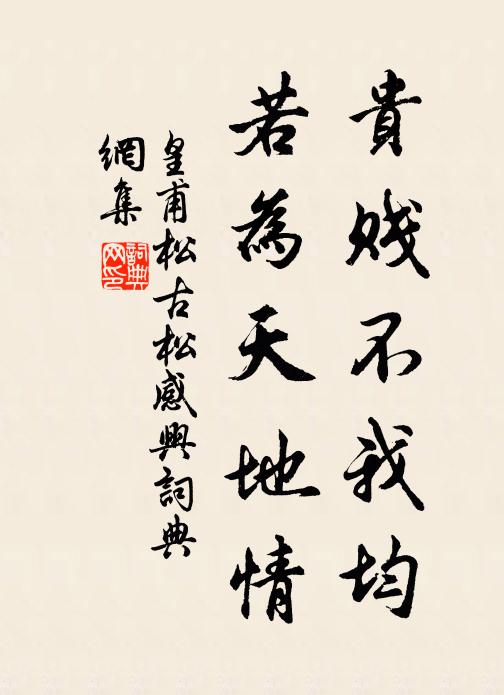 貴賤不我均
若為天地情
皇甫松古松感興詞典
網集
詞典網印